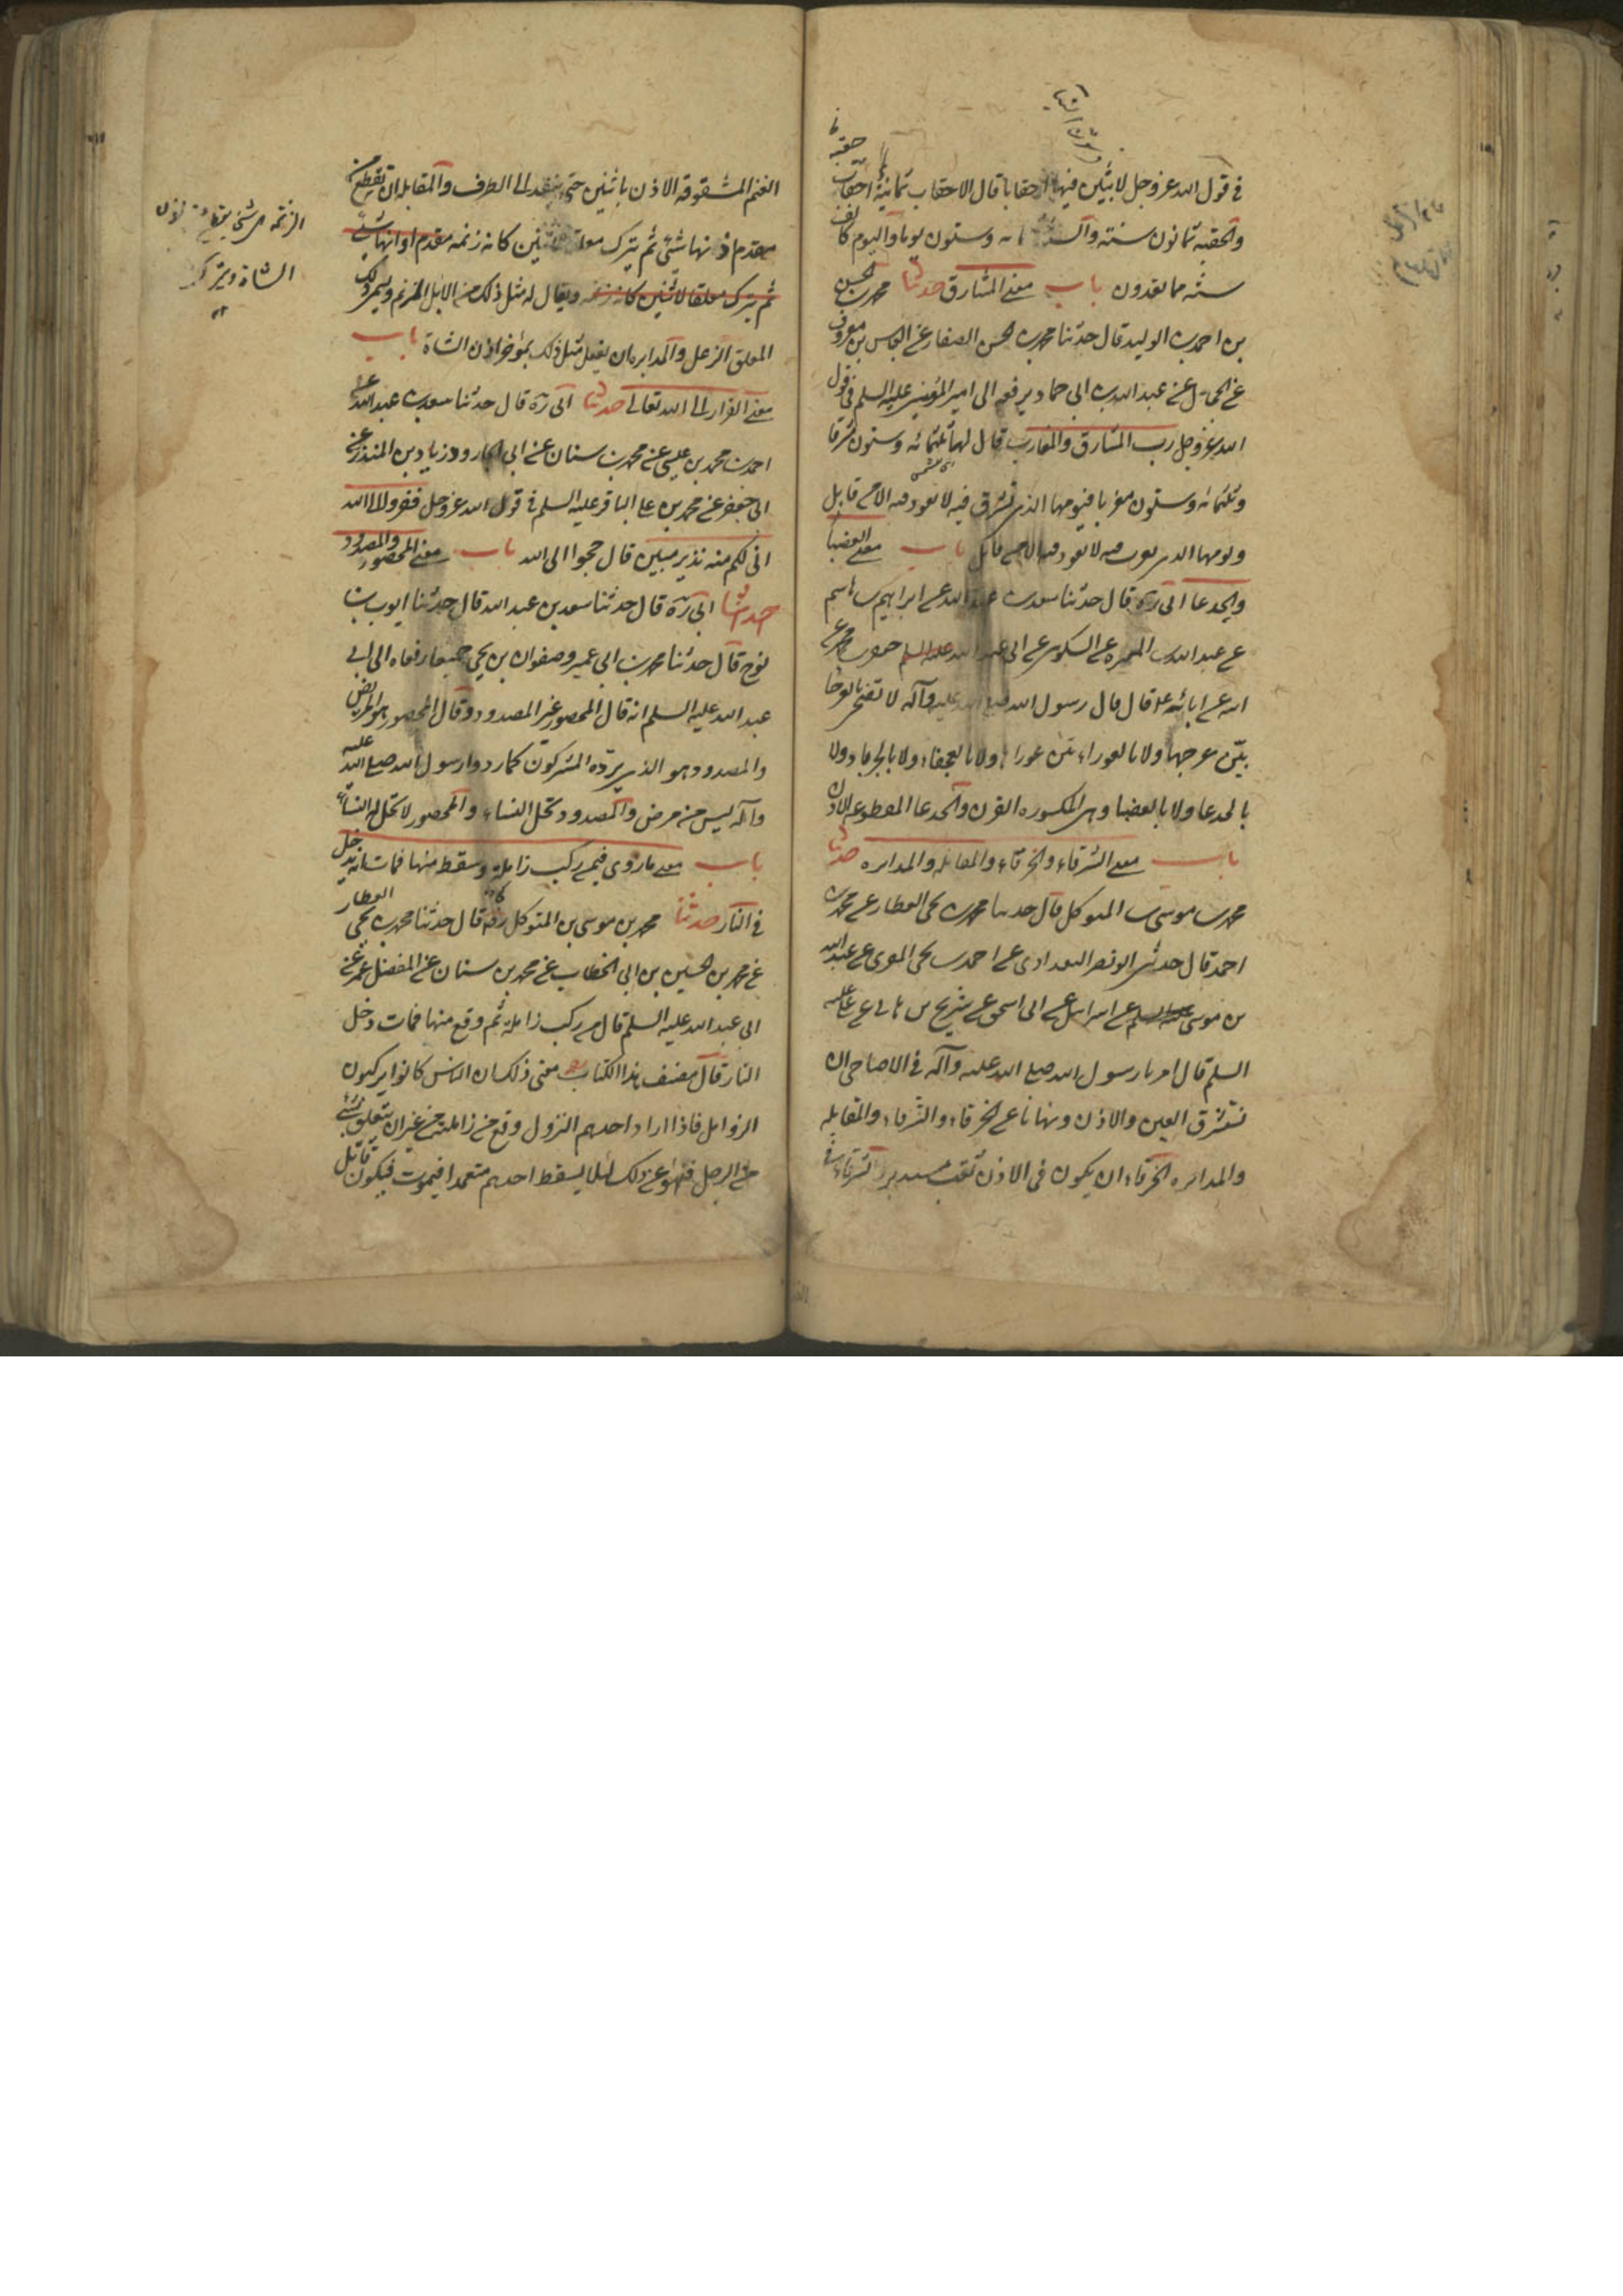 في قول الله عز وجل لابثين فيها احقابا قال الاحقاب ثمانية احقاب
حقبة
والحقبه ثمانون سنته والسنة وستون يوما واليوم كالف
سنه مما تعدون باب معنى المشارق حدثنا محمد بن الحسن
بن احمد بن الوليد قال حدثنا محمد بن الحسن الصفار عن العباس بن معروف
عن الحجال عن عبد الله بن ابى حماد يرفعه الى امير المؤمنين عليه السلم في قول
الله عز وجل رب المشارق والمغارب قال لها ثلثمائه وستون مشرقا
وثلثمائه وستون مغربا فيومها الذى تشرق فيه لا تعود فيه الا من قابل
ويومها الذى تغرب فيه لا تعود فيه الا من قابل باب معنى العضبا
والجدعا ابى ره قال حدثنا سعد بن عبد الله عن ابراهيم بن هاشم
عن عبد الله بن المغيره عن السكونى عن جعفر بن محمد عن
ابيه عن ابائه ع قال قال رسول الله صلى الله عليه وآله لا تضحى بالعرجا
بيّن عرجها ولا بالعوراء بيّن عورا ولا بالعجفاء ولا بالجرباء ولا
بالجدعا ولا بالعضبا وهى المكسوره القرن والجدعا المقطوعه الاذن
باب معنى الشرقاء والخرقاء والمقابله والمدابره حدثنا
محمد بن موسى بن المتوكل قال حدثنا محمد بن يحيى العطار عن محمد بن
احمد قال حدثنى ابو نصر البغدادى عن احمد بن يحيى المقرى عن عبد الله
بن موسى عن اسرائيل عن ابى اسحق عن شريح بن هانى عن على عليه
السلم قال امرنا رسول الله صلى الله عليه وآله في الاضاحى ان
نستشرق العين والاذن ونهانا عن الخرقاء والشرقاء والمقابله
والمدابره الخرقاء ان يكون في الاذن ثقب مستدير والشرقاء في
الغنم المشقوقه الاذن باثنين حتى ينفذ الى الطرف والمقابله ان تقطع من
مقدم اذنها شئ ثم يترك معلقا لاثنين كانه زنمه مقدم اذانها شئ
ثم يترك معلقا لاثنين كانه زنمه ويقال له مثل ذلك من الابل المزنم ويسمى ذلك
المعلق الزعل والمدابره ان يفعل مثل ذلك بموخر اذن الشاة باب
معنى الفرار الى الله تعالى حدثنا ابى ره قال حدثنا سعد بن عبد الله عن
احمد بن محمد بن عيسى عن محمد بن سنان عن ابى الجارود زياد بن المنذر عن
ابى جعفر عن محمد بن على الباقر عليه السلم في قول الله عز وجل ففروا الى الله
انى لكم منه نذير مبين قال حجوا الى الله باب معنى المحصور والمصدود
حدثنا ابى ره قال حدثنا سعد بن عبد الله قال حدثنا ايوب بن
نوح قال حدثنا محمد بن ابى عمير وصفوان بن يحيى جميعا رفعاه الى ابى
عبد الله عليه السلم انه قال المحصور غير المصدود وقال المحصور هو المريض
والمصدود هو الذى يرده المشركون كما ردوا رسول الله صلى الله عليه
وآله ليس من مرض والمصدود تحل النساء والمحصور لا تحل له النساء
باب معنى ما روى فيمن ركب زاملة وسقط منها فمات انه يدخل
في النار حدثنا محمد بن موسى بن المتوكل ره قال حدثنا محمد بن يحيى العطار
عن محمد بن الحسين بن ابى الخطاب عن محمد بن سنان عن المفضل بن عمر عن
ابى عبد الله عليه السلم قال من ركب زاملة ثم وقع منها فمات دخل
النار قال مصنف هذا الكتاب معنى ذلك ان الناس كانوا يركبون
الزوامل فاذا اراد احدهم النزول وقع من زاملته من غير ان يتعلق بشئ
من الرحل فنهوا عن ذلك لئلا يسقط احدهم متعمدا فيموت فيكون قاتل
الزنمه هى شئ يقطع من اذن
الشاة ويترك